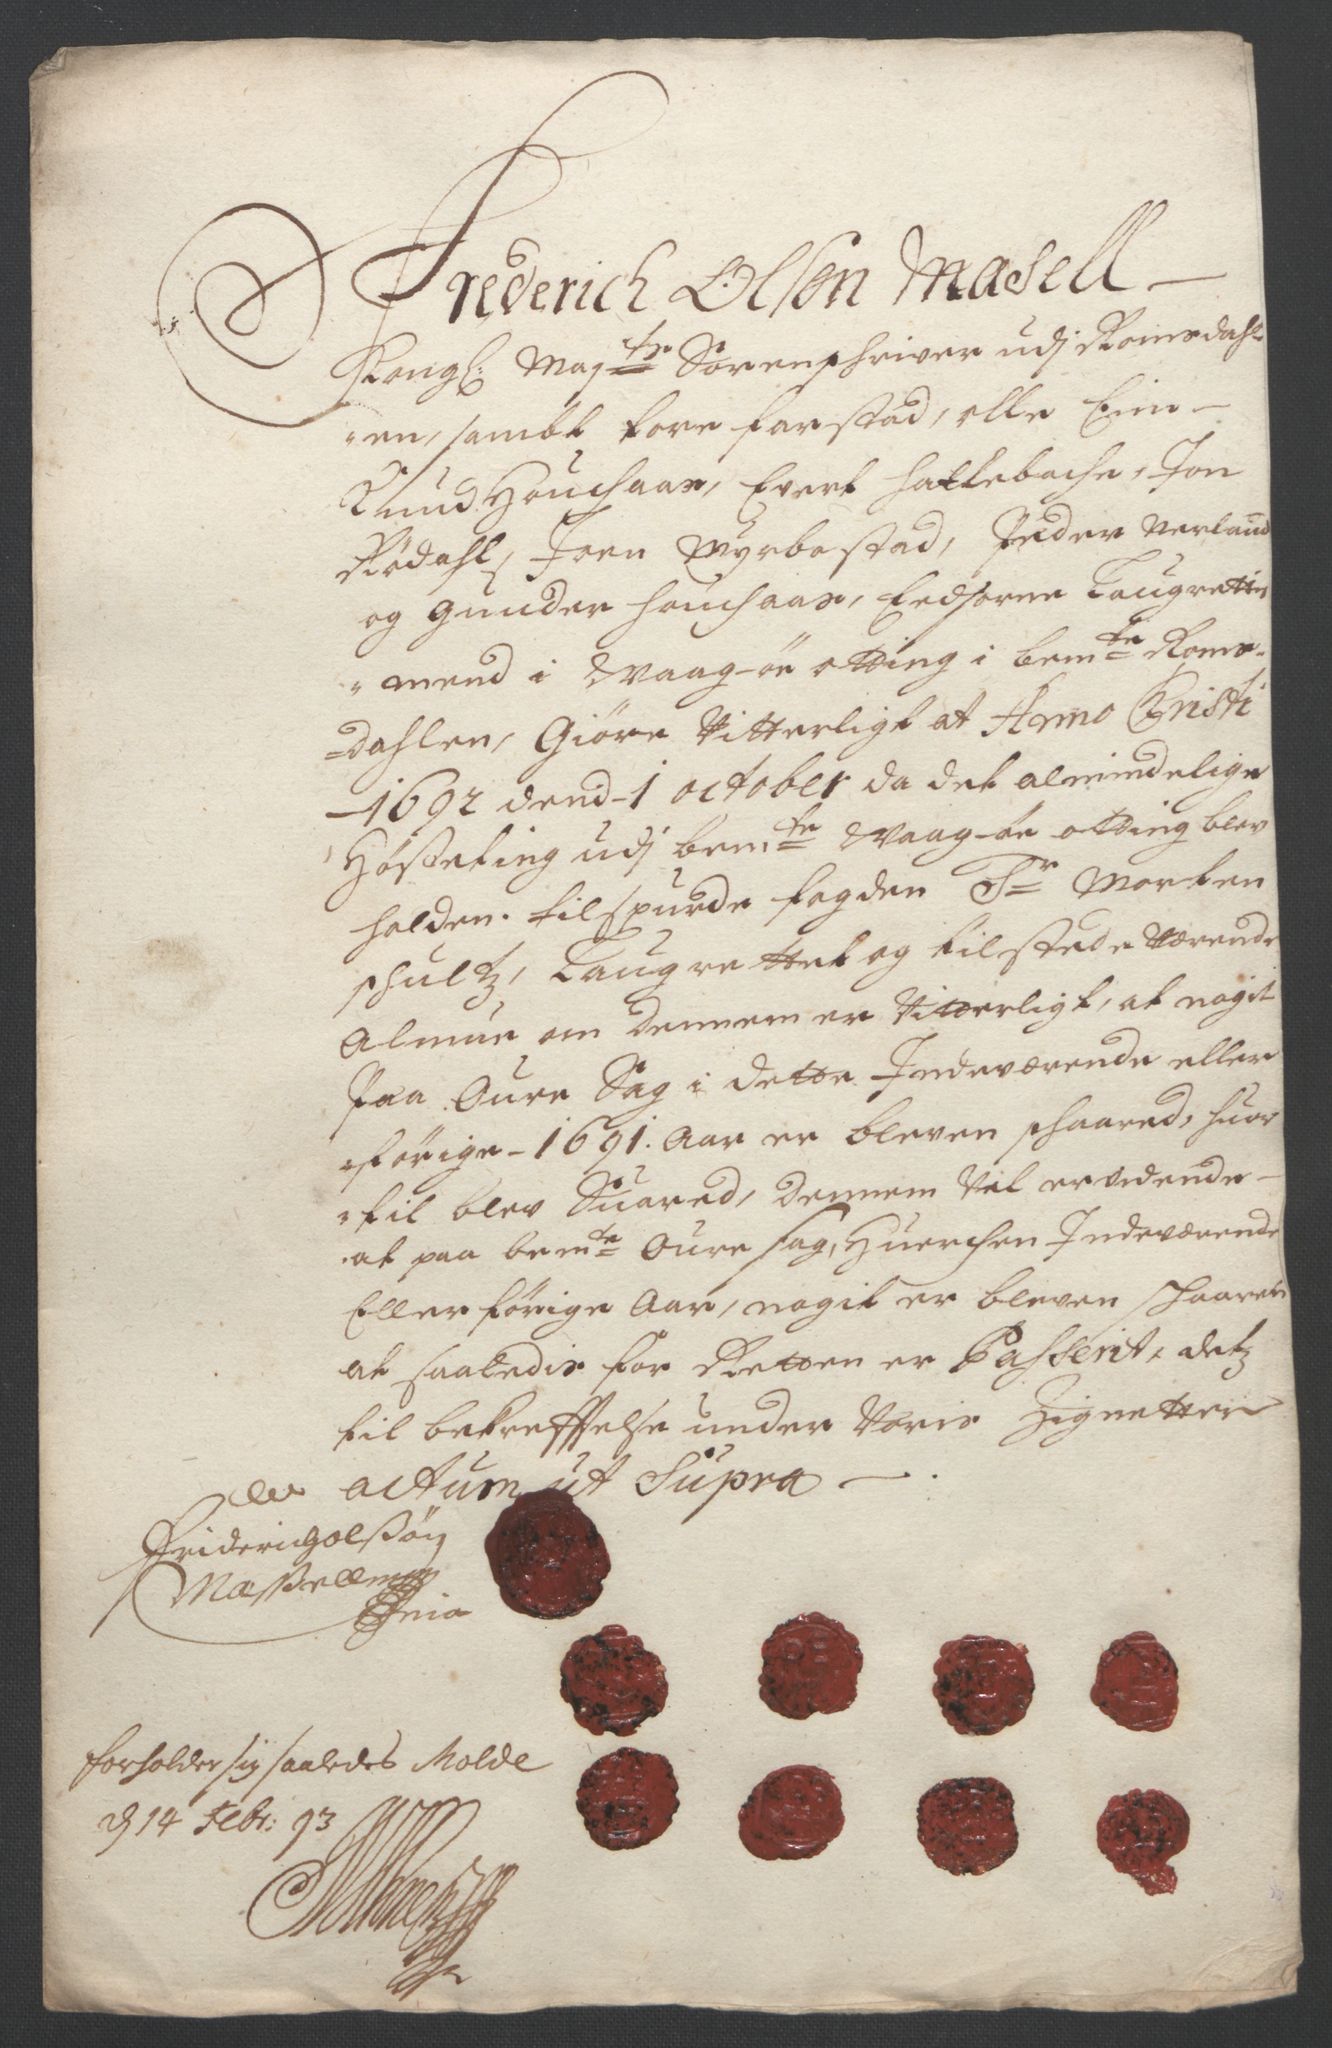 Frederich Olsen Masell
Kongl: Maj.ts Sorenschriver udj Romsdahl
en, sambt Tore farstad, olle Eim
Knud Houchaas, Evert Hattebache, Jon
Rødahl, Joen Myrbostad, Peder Verland
og Gunder Houchaas, Eedsorne Laugrettis
mend i Waag-øe otting i bem.te Roms-
dahlen, Giöre Vitterligt at Anno Cristi
1692 dend 1 october da det almindelige
Hösteting udj bem.te Waag-øe otting blev
holden. tilspurde fogden Sr Morten
Schultz, Laugrettet og tilstede Værende
Almue om dennem er Vitterligt, at nogit
Paa Oure Sag i dette Indeværende eller
forige 1691. Aar er bleven schaared, huor
til blev Suared, dennem Vel ervidende
at paa bem.te Oure sag, Huerchen Indeværende
Eller forige Aar, nogit er bleven schaaren
at saaledis for Retten er Passerit, detz
til bekreffelse under Voris Zignetter
actum ut Supra
Friderich olssøn
Massell mpp
forholder sig saaledes Molde
d 14 Febr: 93